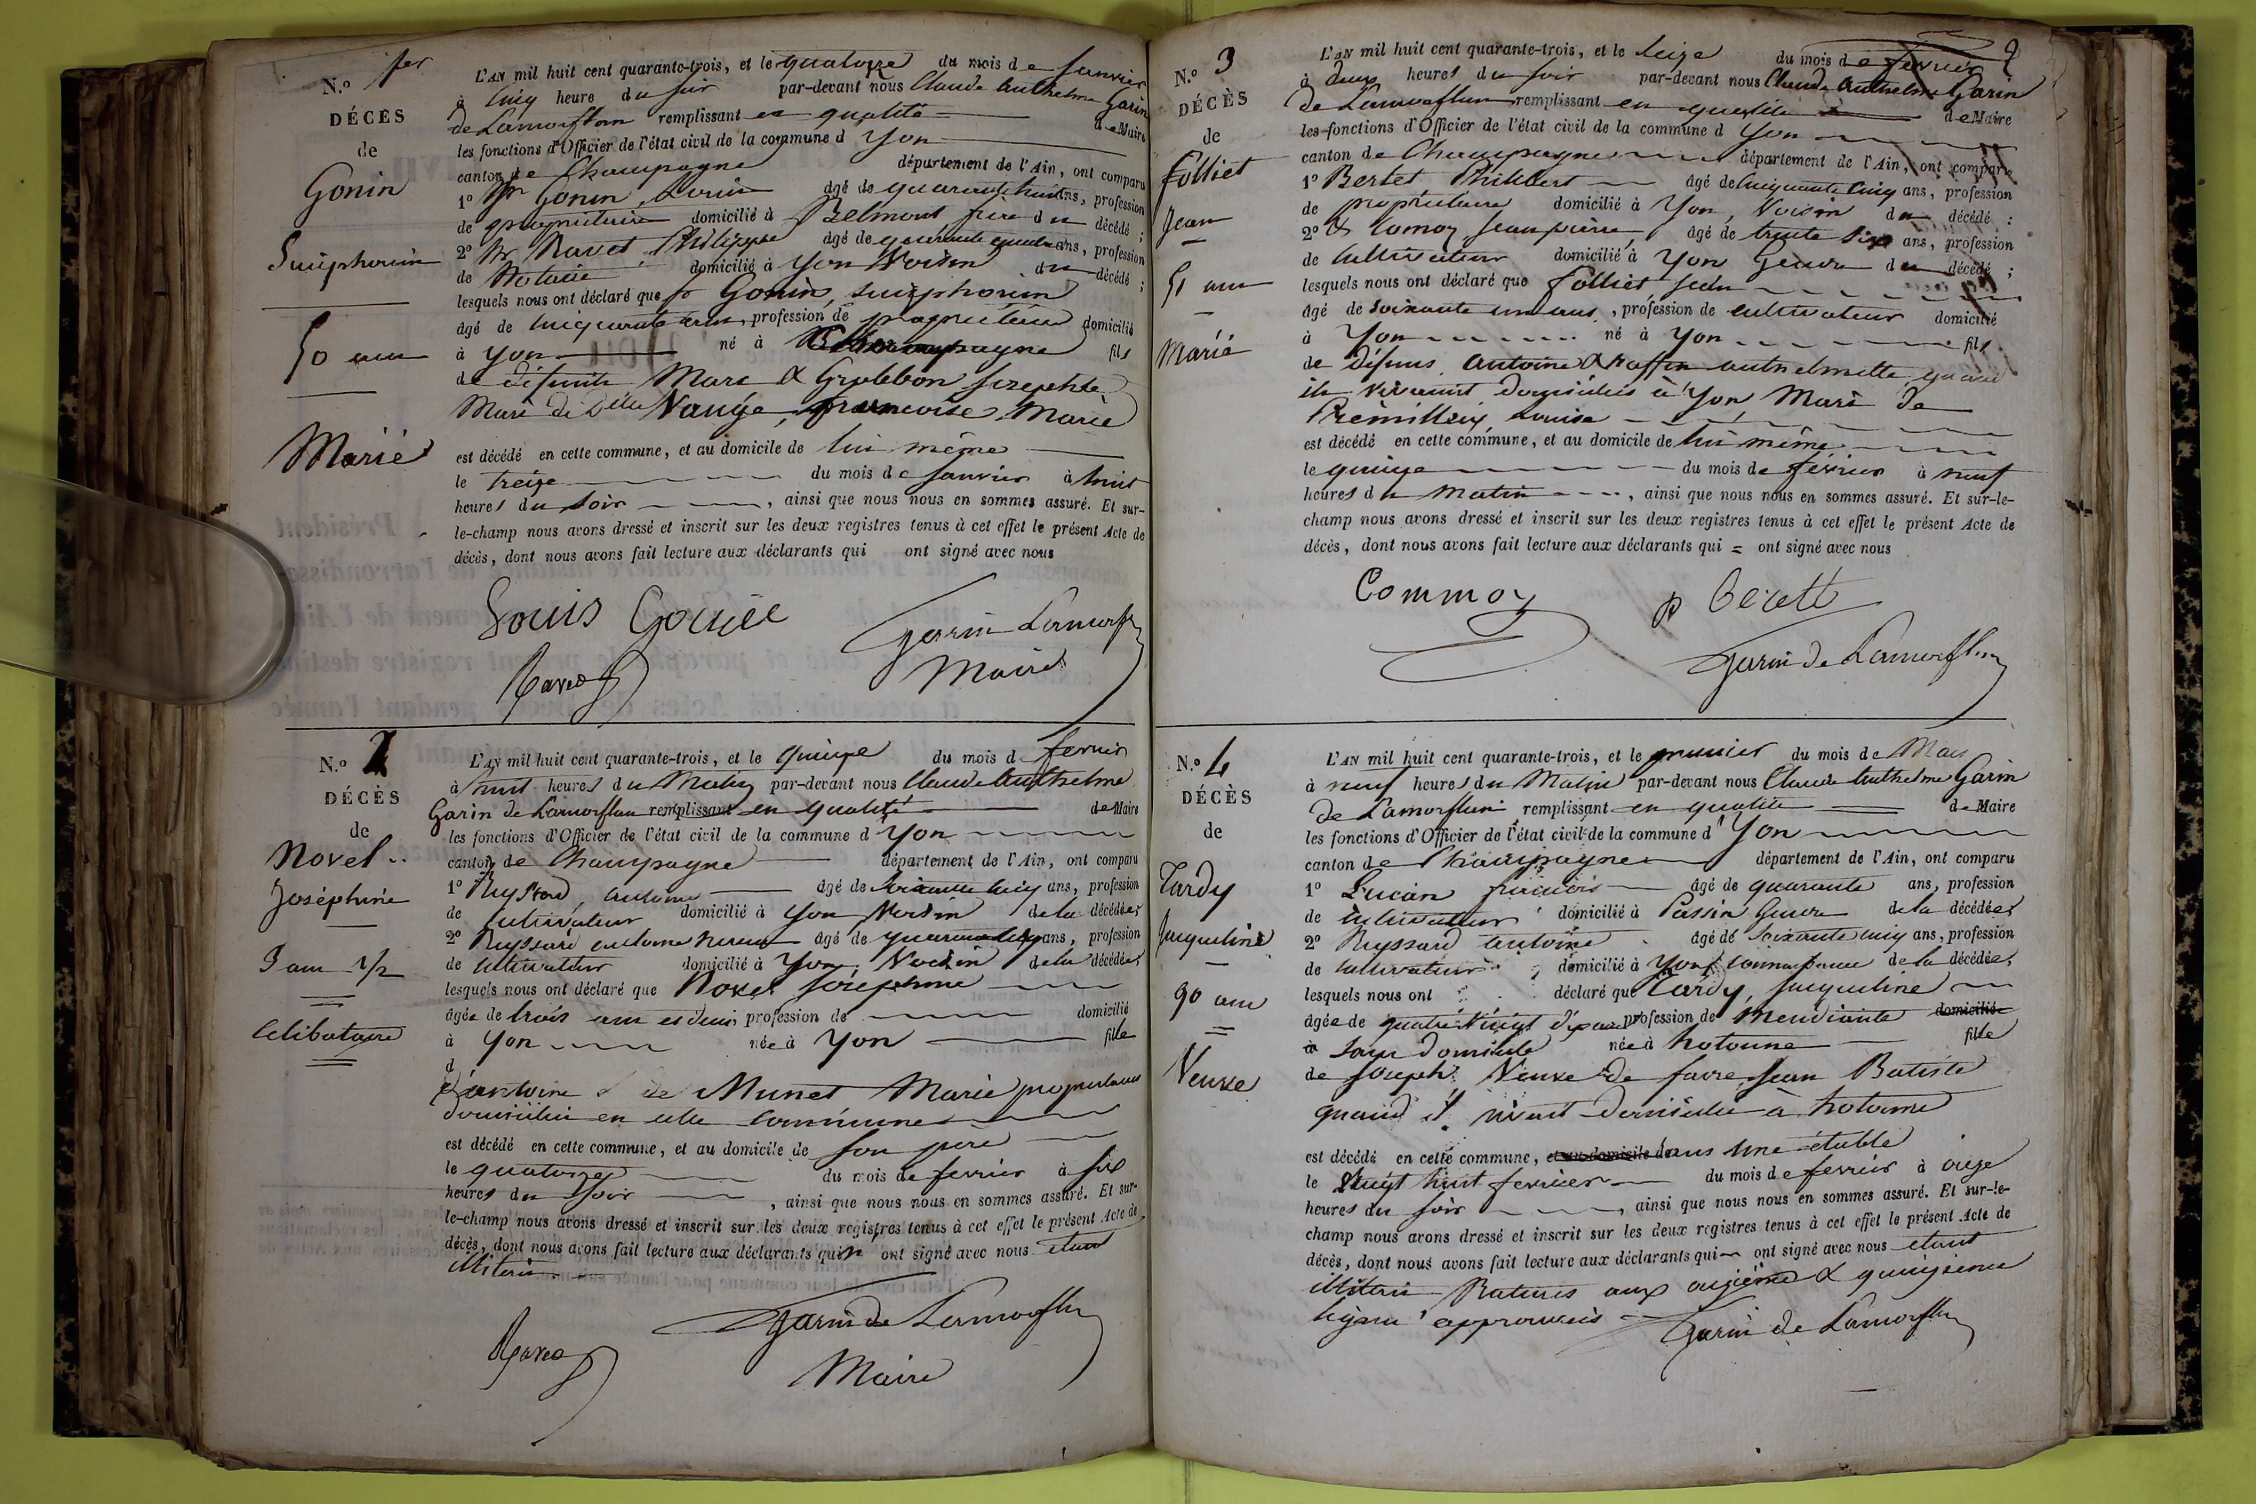 N.o 1er
DÉCÈS
de
Gonin
Simphorien
50 ans
Marié
L'AN mil huit cent quarante-trois, et le quatorze du mois de Janvier
à cinq heure du soir par-devant nous Claude Anthelme Garin
de Lamorflan remplissant en qualité de Maire
les fonctions d'Officier de l'état civil de la commune d Yon
canton de Champagne département de l'Ain, ont comparu
1o Mr Gonin, Louis âgé de quarante huit ans, profession
de propriétaire domicilié à Belmont frère du décédé ;
2o Mr Ravet, Philippe âgé de quarante quatre ans, profession
de Notaire domicilié à Yon Voisin du décédé ;
lesquels nous ont déclaré que Gonin, Simphorien
âgé de cinquante ans, profession de propriétaire domicilié
à Yon né à fils
de défunts Marc & Grobbon Josephte
Marié de Delle Vauge, francoise, Marie
est décédé en cette commune, et au domicile de lui même
le treize du mois de Janvier à huit
heures du soir, ainsi que nous nous en sommes assuré. Et sur-
le-champ nous avons dressé et inscrit sur les deux registres tenus à cet effet le présent Acte de
décès, dont nous avons fait lecture aux déclarants qui ont signé avec nous
Louis Gonin
Garin Lamorflan
Maire
Ravet
N.o 2
DÉCÈS
de
Novel
Joséphine
3 ans 1/2
Celibataire
L'AN mil huit cent quarante-trois, et le quinze du mois de fevrier
à huit heures du Matin par-devant nous Claude Anthelme
Garin de Lamorflan remplissant en qualité de Maire
les fonctions d'Officier de l'état civil de la commune d'Yon
canton de Champagne département de l'Ain, ont comparu
1o Ruyssard, antoine âgé de soixante cinq ans, profession
de cultivateur domicilié à Yon Voisin de la décédée;
2o Ruyssard antoine neveu âgé de ans, profession
de cultivateur domicilié à Yon, Voisin de la décédée;
lesquels nous ont déclaré que Novel Joséphine
âgée de trois ans et demi profession de domicilié
à Yon née à Yon fille
d
d'antoine & de Munet Marie propriétaires
domiciliés en cette commune
est décédé en cette commune, et au domicile de son pere
le quatorze du mois de fevrier à six
heures du soir, ainsi que nous nous en sommes assuré. Et sur-
le-champ nous avons dressé et inscrit sur les deux registres tenus à cet effet le présent Acte de
décès, dont nous avons fait lecture aux déclarants qui n'ont signé avec nous étant
illiterés
Garin de Lamorflan
Ravet
Maire
2
N.o 3
DÉCÈS
de
Folliet
Jean
51 ans
Marié
L'AN mil huit cent quarante-trois, et le seize du mois de fevrier
à deux heures du soir par-devant nous Claude Anthelme Garin
de Lamorflan remplissant en qualité de Maire
les fonctions d'Officier de l'état civil de la commune d Yon
canton de Champagne département de l'Ain, ont comparu
1o Bertet, Philibert âgé de cinquante cinq ans, profession
de propriétaire domicilié à Yon, Voisin du décédé :
2o & Comoy Jean pierre, âgé de trente six ans, profession
de cultivateur domicilié à Yon Gendre du décédé ;
lesquels nous ont déclaré que folliet Jean
âgé de soixante un ans, profession de cultivateur domicilié
à Yon né à Yon fils
de défunts Antoine & Raffin anthelmette quand
ils vivaient domiciliés à Yon Marié de
Prémillieu Louise
est décédé en cette commune, et au domicile de lui même
le quinze du mois de février à neuf
heures du matin, ainsi que nous nous en sommes assuré. Et sur-le-
champ nous avons dressé et inscrit sur les deux registres tenus à cet effet le présent Acte de
décès, dont nous avons fait lecture aux déclarants qui = ont signé avec nous
Commoy
Garin de Lamorflan
N.o 4
DÉCÈS
de
Tardy
Jacqueline
90 ans
Veuve
L'AN mil huit cent quarante-trois, et le premier du mois de Mars
à neuf heures du Matin par-devant nous Claude Anthelme Garin
de Lamorflan remplissant en qualité de Maire
les fonctions d'Officier de l'état civil de la commune d'Yon
canton de Champagne département de l'Ain, ont comparu
1o Lucain francois âgé de quarante ans, profession
de cultivateur domicilié à Passin Gendre de la décédée;
2o Ruyssard antoine âgé de soixante cinq ans, profession
de cultivateur domicilié à Yon connaissance de la décédée;
lesquels nous ont déclaré que Tardy, Jacqueline
âgée de quatre Vingt dix ans profession de mendiante domicilié
à sans domicile née à hotonne fille
de Joseph Veuve de favre Jean Batiste
quand il vivait domicilié à hotonne
est décédé en cette commune, et au domicile dans une étable
le Vingt huit fevrier du mois de fevrier à onze
heures du soir, ainsi que nous nous en sommes assuré. Et sur-le-
champ nous avons dressé et inscrit sur les deux registres tenus à cet effet le présent Acte de
décès, dont nous avons fait lecture aux déclarants qui n' ont signé avec nous étant
illiterés Ratures aux onzième & quinzieme
lignes approuvées
Garin de Lamorflan